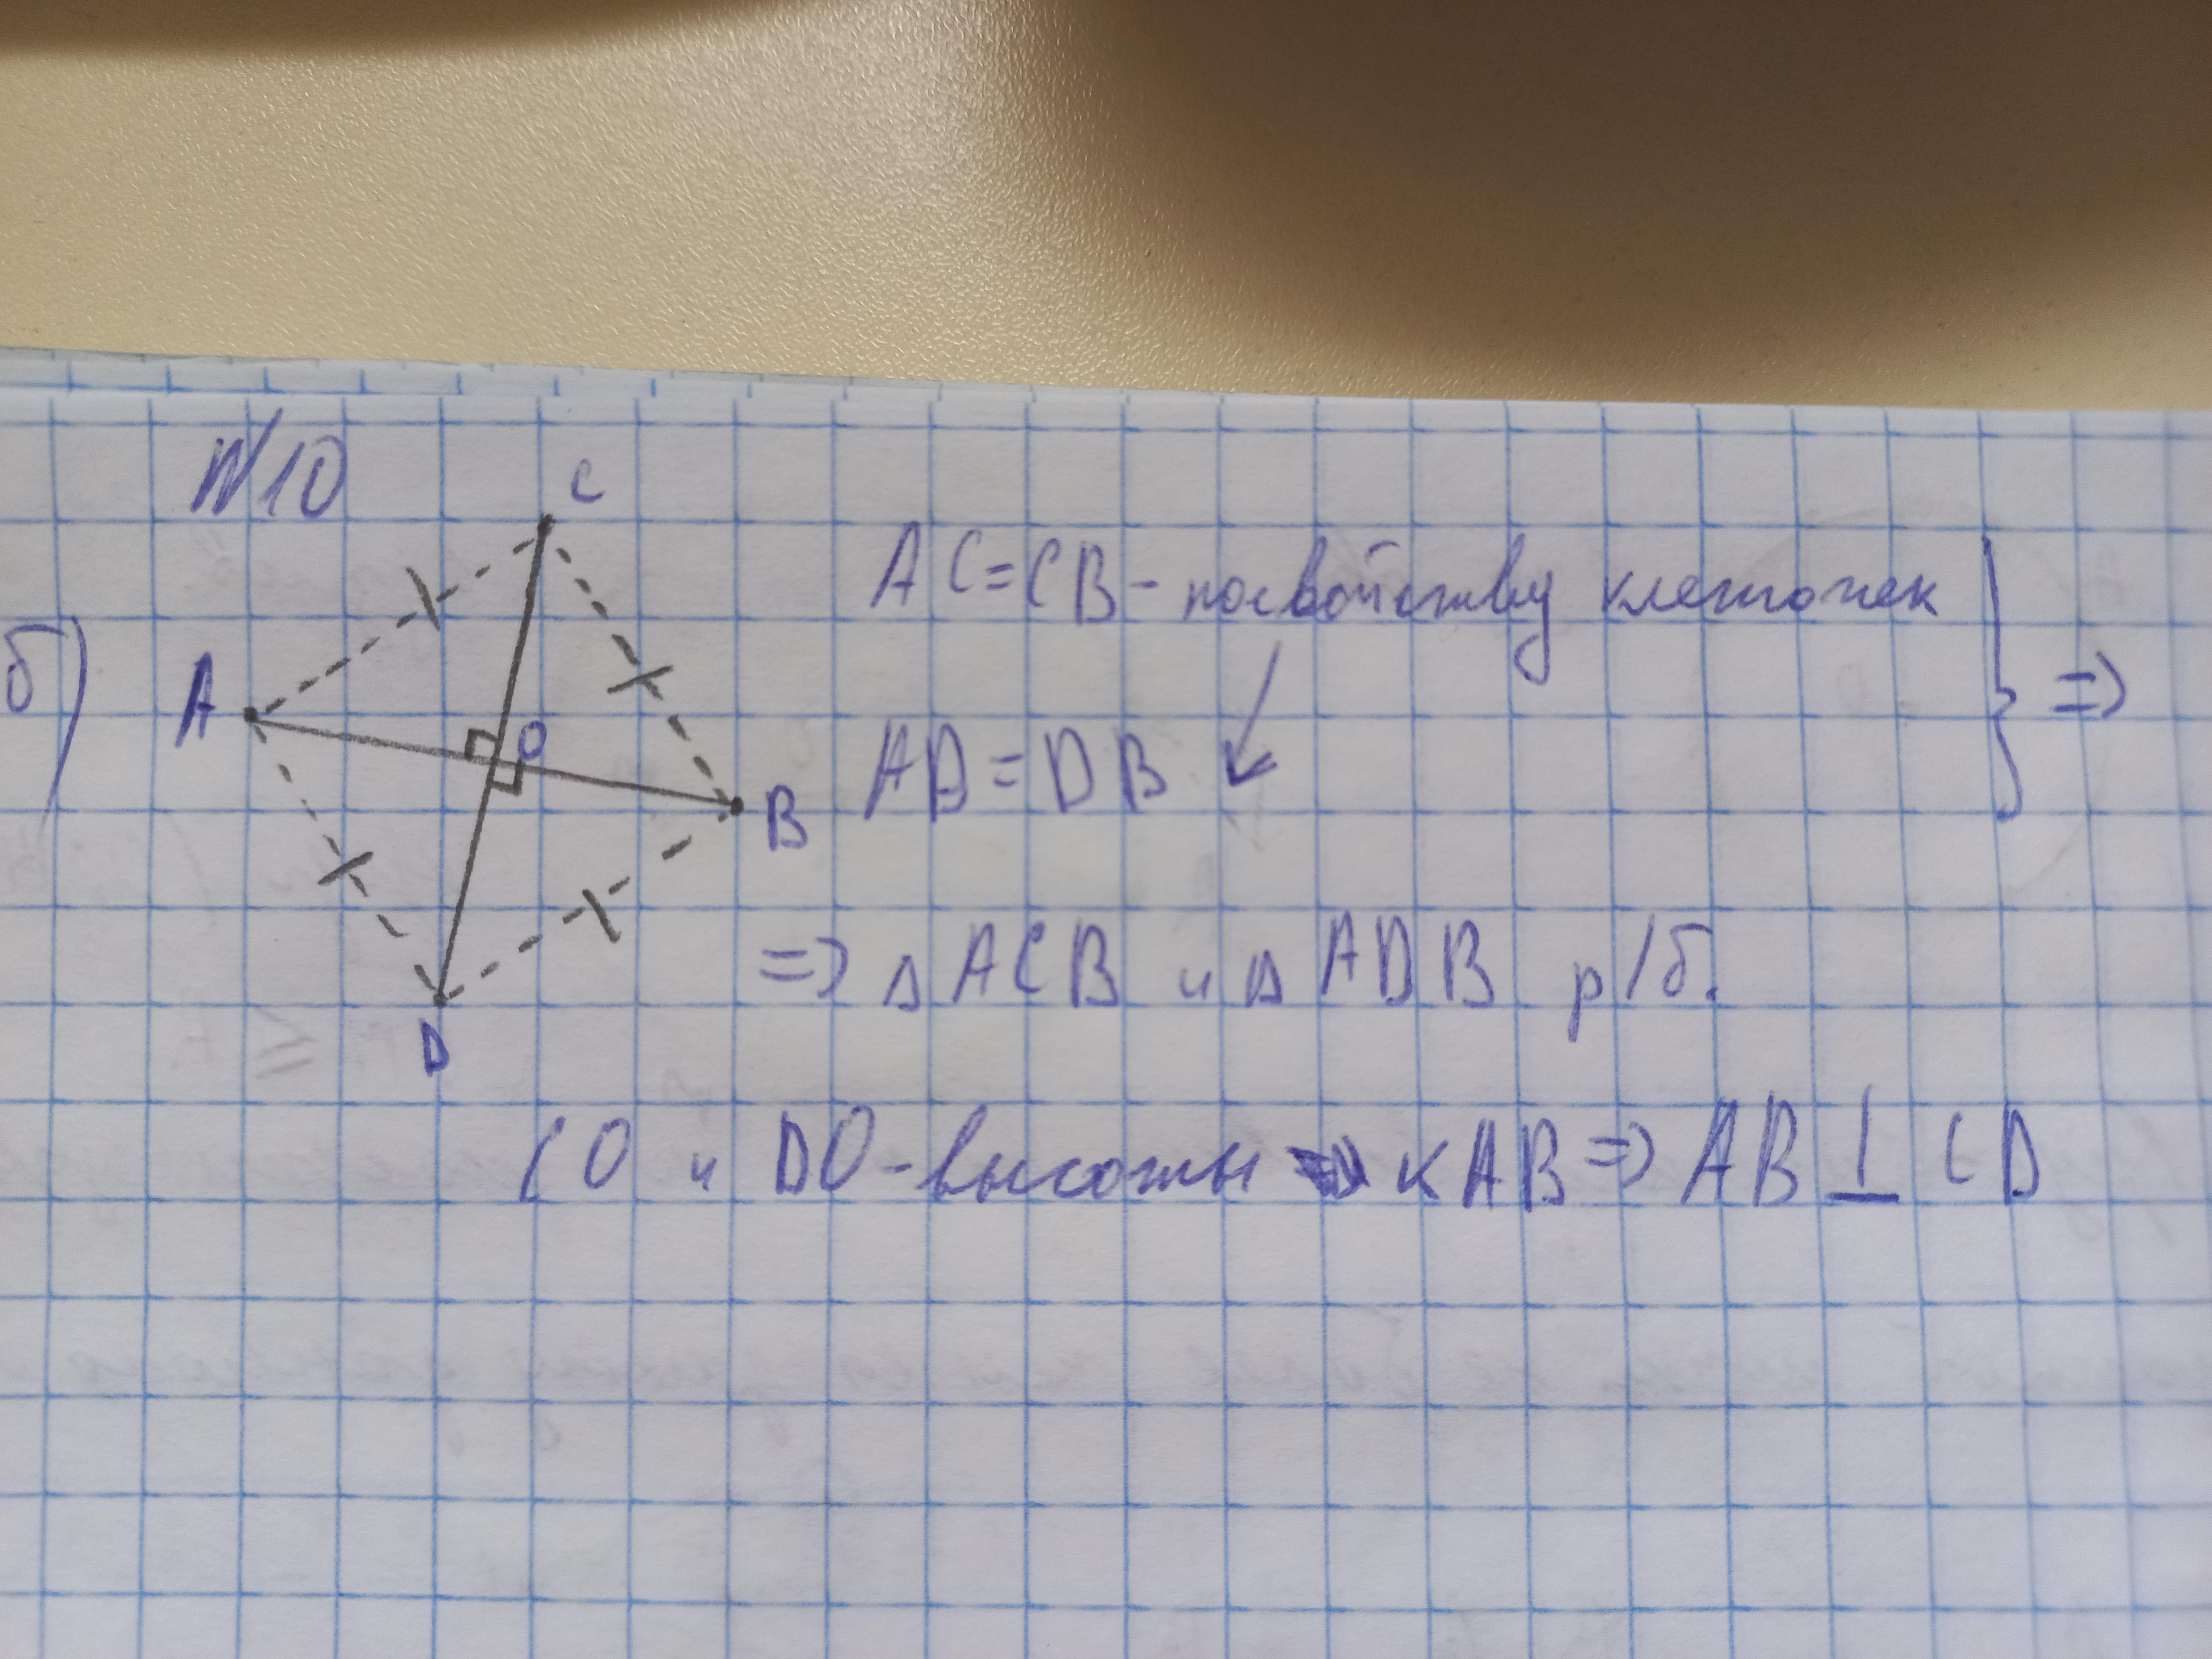 N10
C
AC=CB - по свойству клеточек
б)
A
O
} =>
AD = DB ↙
B
=> △ ACB и △ ADB р/б.
D
CO и DO - высоты к AB => AB ⊥ CD